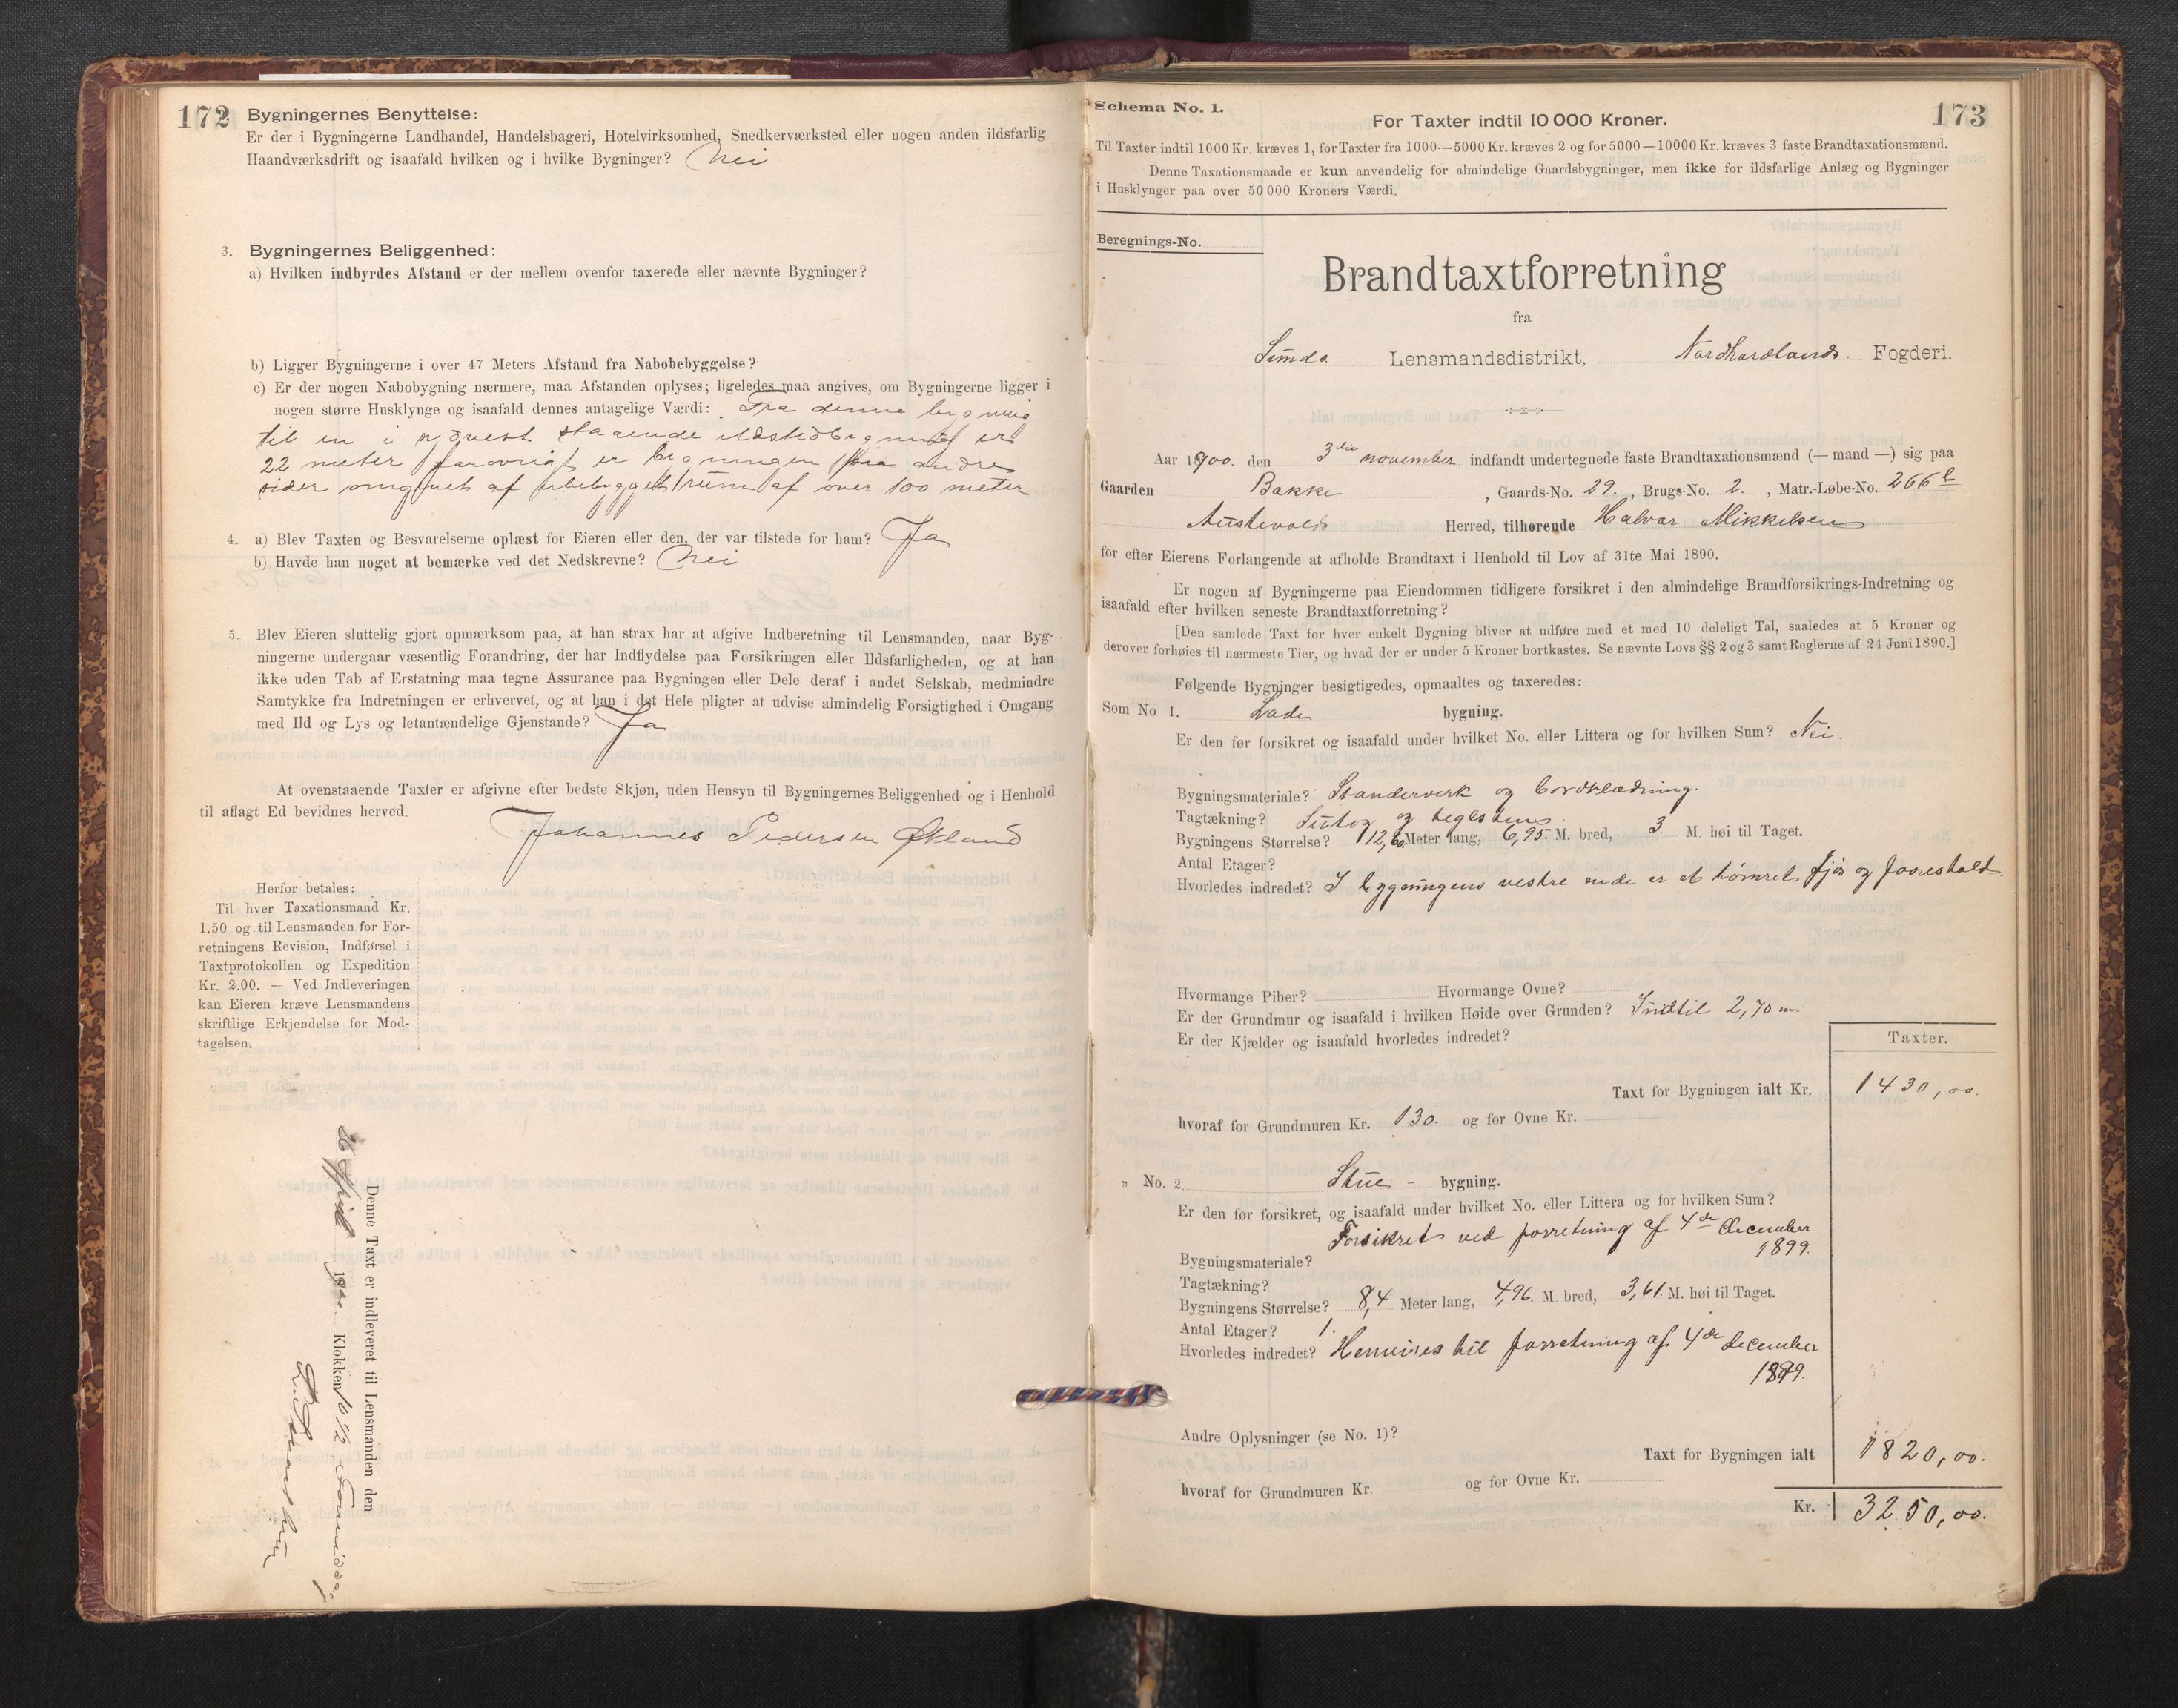 172
Bygningernes Benyttelse:
Er der i Bygningerne Landhandel, Handelsbageri, Hotelvirksomhed, Snedkerværksted eller nogen anden ildsfarlig
Haandværksdrift og isaafald hvilken og i hvilke Bygninger? Nei
3. Bygningernes Beliggenhed:
a) Hvilken indbyrdes Afstand er der mellem ovenfor taxerede eller nævnte Bygninger?
b) Ligger Bygningerne i over 47 Meters Afstand fra Nabobebyggelse?
c) Er der nogen Nabobygning nærmere, maa Afstanden oplyses; ligeledes maa angives, om Bygningerne ligger i
nogen større Husklynge og isaafald dennes antagelige Værdi: Fra denne bygning
til en i nordvest staaende ildstedbygning er
22 meter forøvrigt er bygningen paa andre
sider omgivet af ubebygget rum af over 100 meter
4. a) Blev Taxten og Besvarelserne oplæst for Eieren eller den, der var tilstede for ham? Ja
b) Havde han noget at bemærke ved det Nedskrevne? Nei
5. Blev Eieren sluttelig gjort opmærksom paa, at han strax har at afgive Indberetning til Lensmanden, naar Byg-
ningerne undergaar væsentlig Forandring, der har Indflydelse paa Forsikringen eller Ildsfarligheden, og at han
ikke uden Tab af Erstatning maa tegne Assurance paa Bygningen eller Dele deraf i andet Selskab, medmindre
Samtykke fra Indretningen er erhvervet, og at han i det Hele pligter at udvise almindelig Forsigtighed i Omgang
med Ild og Lys og letantændelige Gjenstande? Ja
At ovenstaaende Taxter er afgivne efter bedste Skjøn, uden Hensyn til Bygningernes Beliggenhed og i Henhold
til aflagt Ed bevidnes herved.
Johannes Pedersen Økland
Herfor betales:
Til hver Taxationsmand Kr.
1.50 og til Lensmanden for For-
retningens Revision, Indførsel i
Taxtprotokollen og Expedition
Kr. 2.00. — Ved Indleveringen
kan Eieren kræve Lensmandens
skriftlige Erkjendelse for Mod-
tagelsen.
Denne Taxt er indleveret til Lensmanden den
26 April 190 Klokken 10 1/2 Formiddag
Schema No. 1.
For Taxter indtil 10 000 Kroner.
173
Til Taxter indtil 1000 Kr. kræves 1, for Taxter fra 1000—5000 Kr. kræves 2 og for 5000—10000 Kr. kræves 3 faste Brandtaxationsmænd.
Denne Taxationsmaade er kun anvendelig for almindelige Gaardsbygninger, men ikke for ildsfarlige Anlæg og Bygninger
i Husklynger paa over 50 000 Kroners Værdi.
Beregnings-No.
Brandtaxtforretning
fra
Sunds Lensmandsdistrikt, Nordhordlands Fogderi.
Aar 1900. den 3die november indfandt undertegnede faste Brandtaxationsmænd (— mand —) sig paa
Gaarden Bakke, Gaards-No. 29., Brugs-No. 2., Matr.-Løbe-No. 266 b
Austevolds Herred, tilhørende Halvar Mikkelsen
for efter Eierens Forlangende at afholde Brandtaxt i Henhold til Lov af 31te Mai 1890.
Er nogen af Bygningerne paa Eiendommen tidligere forsikret i den almindelige Brandforsikrings-Indretning og
isaafald efter hvilken seneste Brandtaxtforretning?
[Den samlede Taxt for hver enkelt Bygning bliver at udføre med et med 10 deleligt Tal, saaledes at 5 Kroner og
derover forhøies til nærmeste Tier, og hvad der er under 5 Kroner bortkastes. Se nævnte Lovs §§ 2 og 3 samt Reglerne af 24 Juni 1890.]
Følgende Bygninger besigtigedes, opmaaltes og taxeredes:
Som No. 1. Lade bygning.
Er den før forsikret og isaafald under hvilket No. eller Littera og for hvilken Sum? Nei.
Bygningsmateriale? Standerverk og bordklædning.
Tagtækning? Sutag og teglsten
Bygningens Størrelse? 12,60 Meter lang, 6,95 M. bred, 3 M. høi til Taget.
Antal Etager?
Hvorledes indredet? I bygningens vestre ende er et tømret fjøs og faarestald.
Hvormange Piber? Hvormange Ovne?
Er der Grundmur og isaafald i hvilken Høide over Grunden? Indtil 2,70 m.
Er der Kjælder og isaafald hvorledes indredet?
Taxter.
Taxt for Bygningen ialt Kr. 1430,00.
hvoraf for Grundmuren Kr. 130. og for Ovne Kr.
" No. 2 Stue - bygning.
Er den før forsikret, og isaafald under hvilket No. eller Littera og for hvilken Sum?
Forsikret ved forretning af 4de December
1899.
Bygningsmateriale?
Tagtækning?
Bygningens Størrelse? 8,4 Meter lang, 4,96. M. bred, 3,61. M. høi til Taget.
Antal Etager? 1.
Hvorledes indredet? Henvises til forretning af 4de december
1899.
Andre Oplysninger (se No. 1)?
Taxt for Bygningen ialt 1820,00.
hvoraf for Grundmuren Kr. og for Ovne Kr.
Kr. 3250,00.